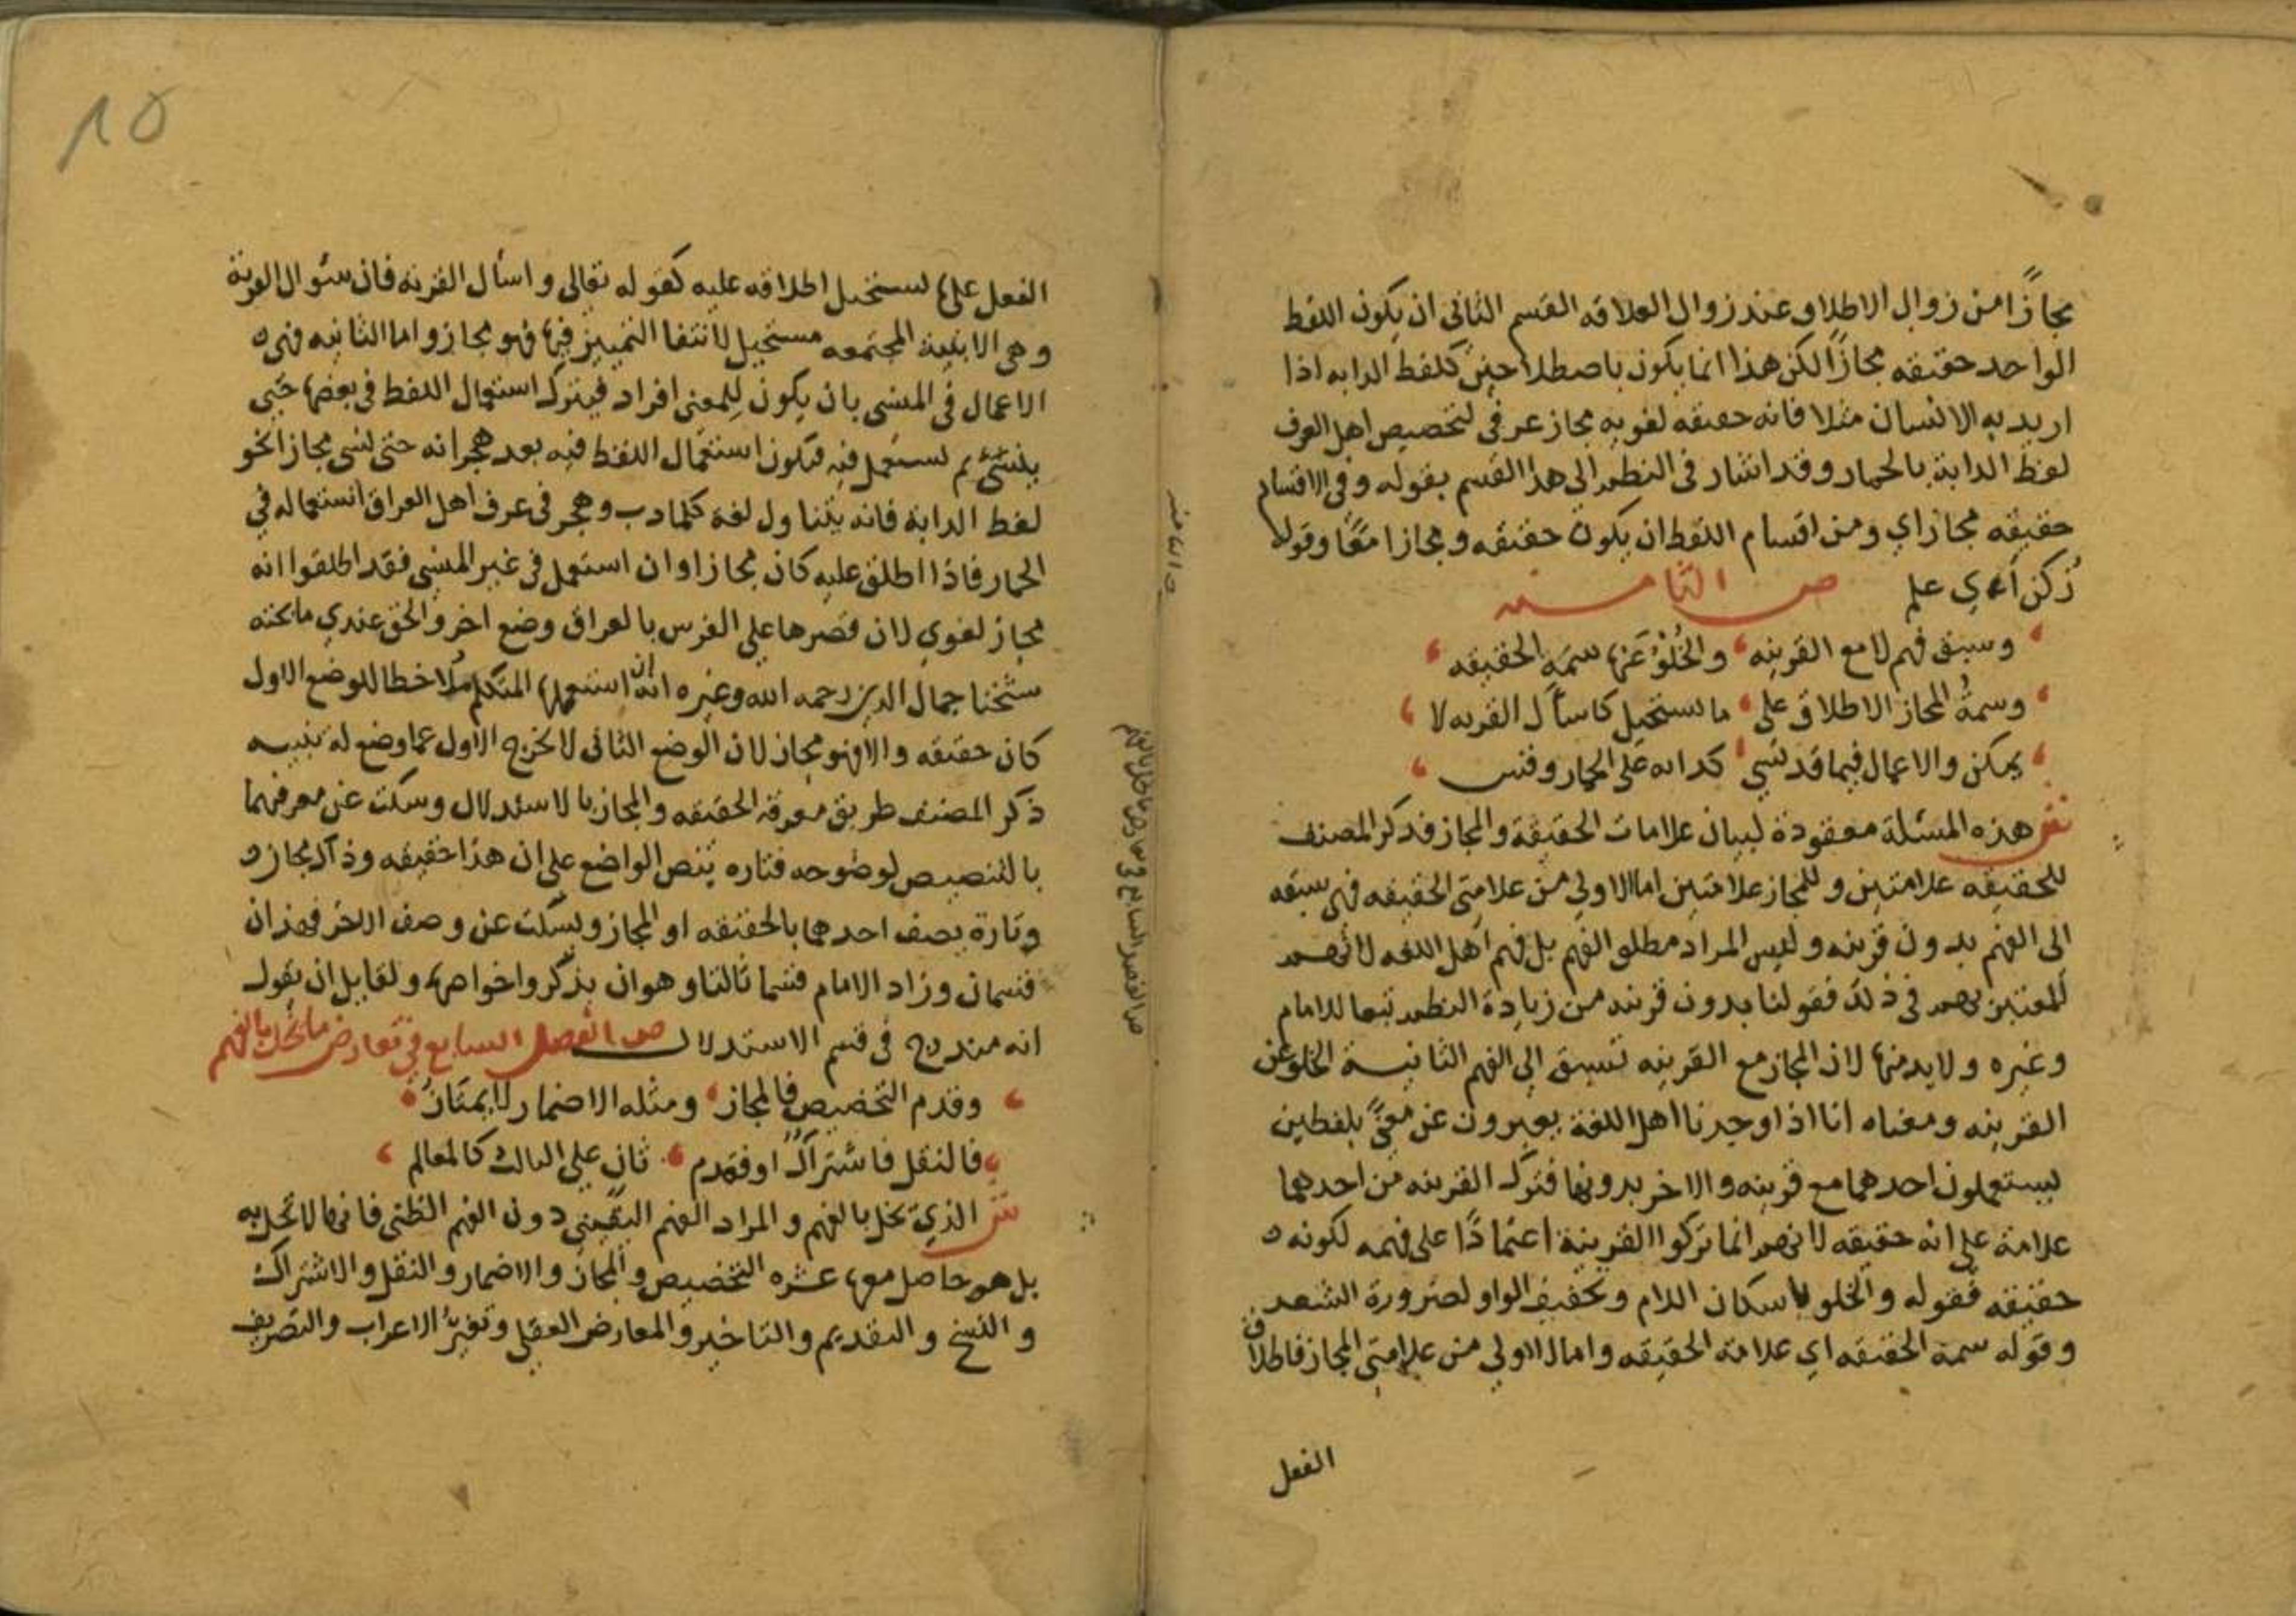 مجازًا من زوال الاطلاق عند زوال العلاقه القسم الثانى ان يكون اللفظ
الواحد حقيقه مجازًا لكن هذا انما يكون باصطلاحين كلفظ الدابه اذا
اريد به الانسان مثلا فانه حقيقه لغويه مجاز عرفي لتخصيص اهل العرف
لفظ الدابة بالحمار وقد اشار في النظم الى هذا القسم بقوله وفي الاقسام
حقيقه مجاز اي ومن اقسام اللفظ ان يكون حقيقه ومجازا معًا وقوله
زكن اي علم ص الثامنه
وسبق فهم لا مع القرينه والخُلْوُ عنها سمَة الحقيقه
وسمةُ المجاز الاطلاق على ما يستحيل كاسأل القريه لا
يمكن والاعمال فيما قد نسي كدابه على الحمار وقس
ش هذه المسئلة معقودة لبيان علامات الحقيقة والمجاز فذكر المصنف
للحقيقه علامتين وللمجاز علامتين اما الاولي من علامتى الحقيقه فهى سبقه
الى الفهم بدون قرينه وليس المراد مطلق الفهم بل فهم اهل اللغه لانهم
المعتبرهم في ذلك فقولنا بدون قرينه من زيادة النظم تبعا للامام
وغيره ولا بد منها لان المجاز مع القرينه تسبق الي الفهم الثانيه الخلو عن
القرينه ومعناه انا اذا وجدنا اهل اللغة يعبرون عن معنًي بلفظين
يستعملون احدهما مع قرينه والاخر بدونها فترك القرينه من احدهما
علامة علي انه حقيقه لانهم انما تركوا القرينة اعتمادًا على فهمه لكونه
حقيقه فقوله والخلو باسكان اللام وتخفيف الواو لضرورة الشعر
وقوله سمة الحقيقه اي علامة الحقيقه واما الاولي من علامتي المجاز فاطلاق
الفعل
١٥
الفعل على يستحيل اطلاقه عليه كقوله تعالى واسأل القريه فان سئوال القرية
وهى الابنية المجتمعه مستحيل لانتفا التمييز فيها فهو مجاز واما الثانيه فهى
الاعمال في المنسى بان يكون للمعنى افراد فيترك استعمال اللفظ في بعضها حتى
ينسى ثم يستعمل فيه فيكون استعمال اللفظ فيه بعد هجرانه حتى نسي مجازا نحو
لفظ الدابة فانه يتناول لغة كلما دب وهجر في عرف اهل العراق استعماله في
الحمار فاذا اطلق عليه كان مجازا وان استعمل في غير المنسي فقد اطلقوا انه
مجاز لغوي لان قصرها على الفرس بالعراق وضع اخر والحق عندي ما بحثه
شيخنا جمال الدين رحمه الله وغيره انه ان استعملها المتكلم ملاحظا للوضع الاول
كان حقيقه والا فهو مجاز لان الوضع الثانى لا يخرج الاول عما وضع له تنبيه
ذكر المصنف طريق معرفة الحقيقه والمجاز بالاستدلال وسكت عن معرفتهما
بالتنصيص لوضوحه فتاره ينص الواضع على ان هذا حقيقه وذاك مجاز
وتارة يصف احدهما بالحقيقه او المجاز ويسكت عن وصف الاخر فهذان
قسمان وزاد الامام قسما ثالثا وهو ان يذكروا خواصها ولقايل ان يقول
انه مندرج في قسم الاستدلال ص الفصل السابع في تعارض ما يخل بالفهم
وقدم التخصيص فالمجاز ومثله الاضمار لا يمتازُ
فالنقل فاشتراك او فقدم ثان علي الثالث كالمعالم
ش الذي يخل بالفهم والمراد الفهم اليقينى دون الفهم الظنى فانها لا تخل به
بل هو حاصل معها عشره التخصيص والمجاز والاضمار والنقل والاشتراك
والنسخ والتقديم والتاخير والمعارض العقلي وتغيرُّ الاعراب والتصريف